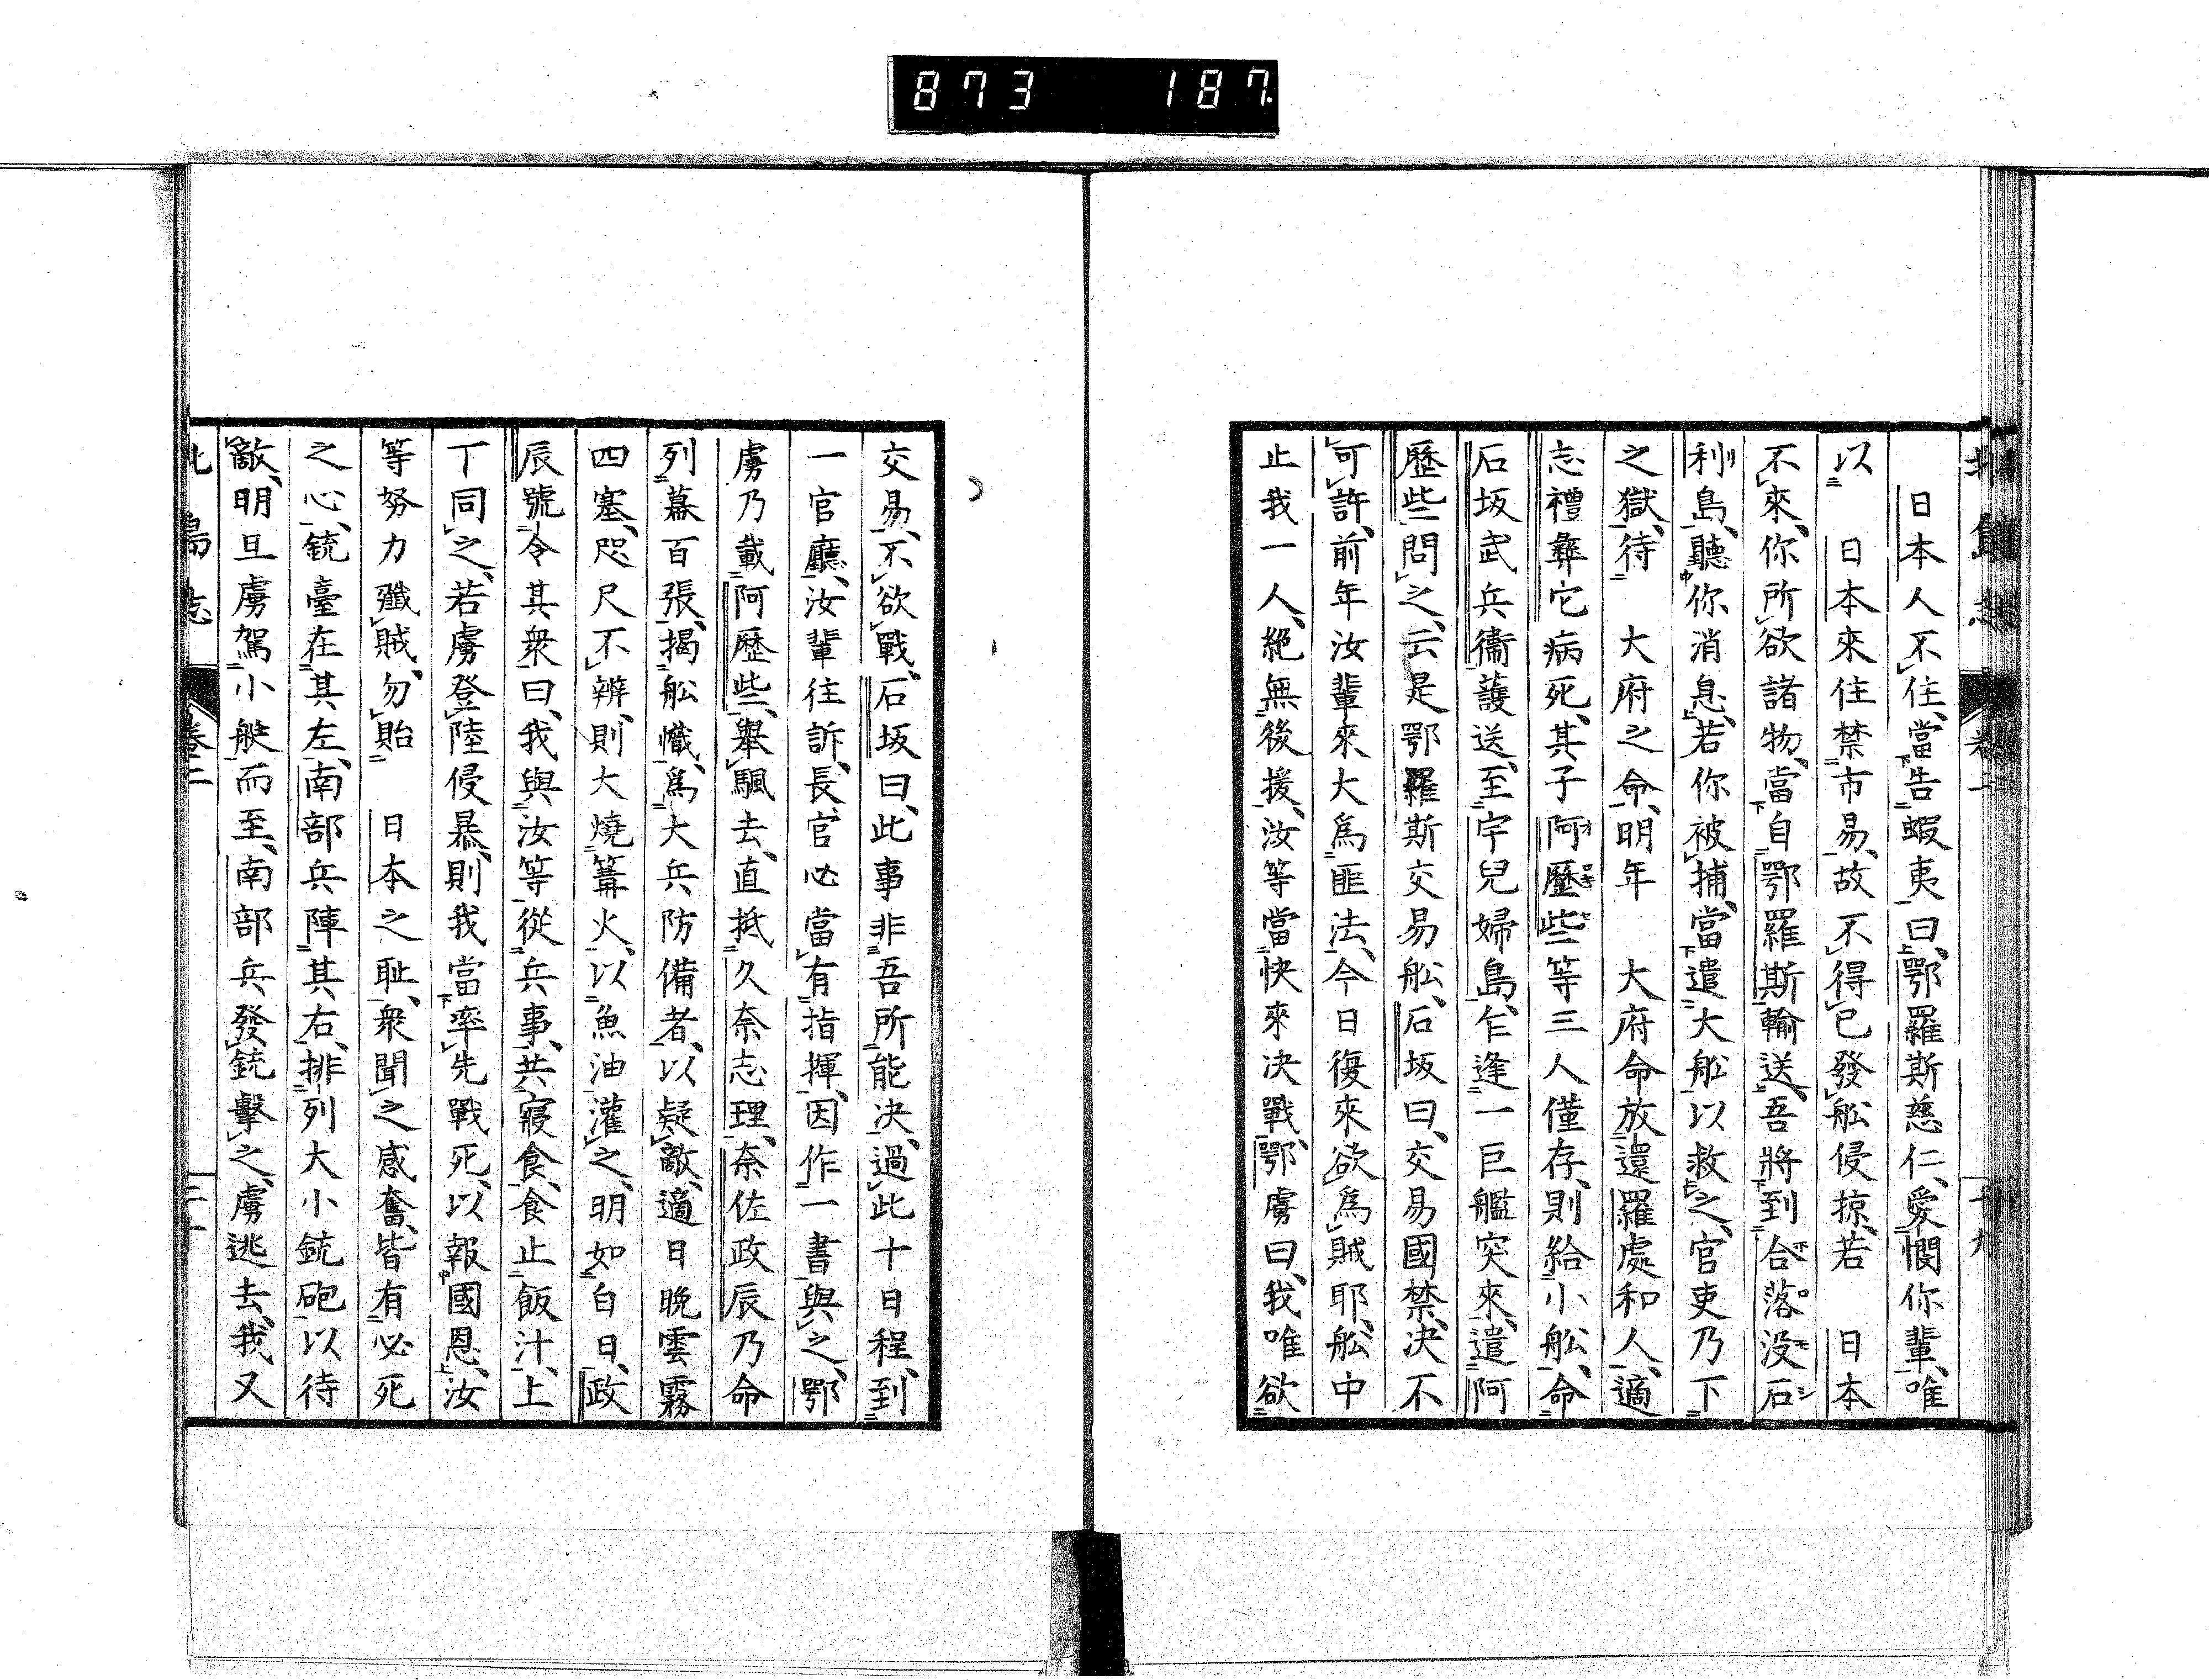 873 187.
日本人不住、當告蝦夷曰、鄂羅斯慈仁、愛憫你輩、唯
以　日本來住禁市易、故不得已發舩侵掠、若　日本
不來、你所欲諸物、當自鄂羅斯輸送、吾將到合落没石
利島、聽你消息、若你被捕、當遣大舩以救之、官吏乃下
之獄、待　大府之命、明年　大府命放還羅處和人、適
志禮彝它病死、其子阿歷些等三人僅存、則給小舩、命
石坂武兵衞護送、至宇兒婦島、乍逢一巨艦突來、遣阿
歷些問之、云是鄂羅斯交易舩、石坂曰、交易國禁、决不
可許、前年汝輩來大為匪法、今日復來欲為賊耶、舩中
止我一人、絶無後援、汝等當快來决戰、鄂虜曰、我唯欲
交易、不欲戰、石坂曰、此事非吾所能决、過此十日程、到
一官廳、汝輩往訴、長官必當有指揮、因作一書與之、鄂
虜乃載阿歷些、擧颿去、直抵久奈志理、奈佐政辰乃命
列幕百張、揭舩幟、為大兵防備者、以疑敵、適日晩雲霧
四塞、咫尺不辨、則大燒篝火、以魚油灌之、明如白日、政
辰號令其衆曰、我與汝等從兵事、共寢食、食止飯汁、上
丅同之、若虜登陸侵暴、則我當率先戰死、以報國恩、汝
等努力殱賊、勿貽　日本之耻、衆聞之感奮、皆有必死
之心、銃臺在其左、南部兵陣其右、排列大小銃砲以待
敵、明旦虜駕小艇而至、南部兵發銃擊之、虜逃去、我又
卷二
二十